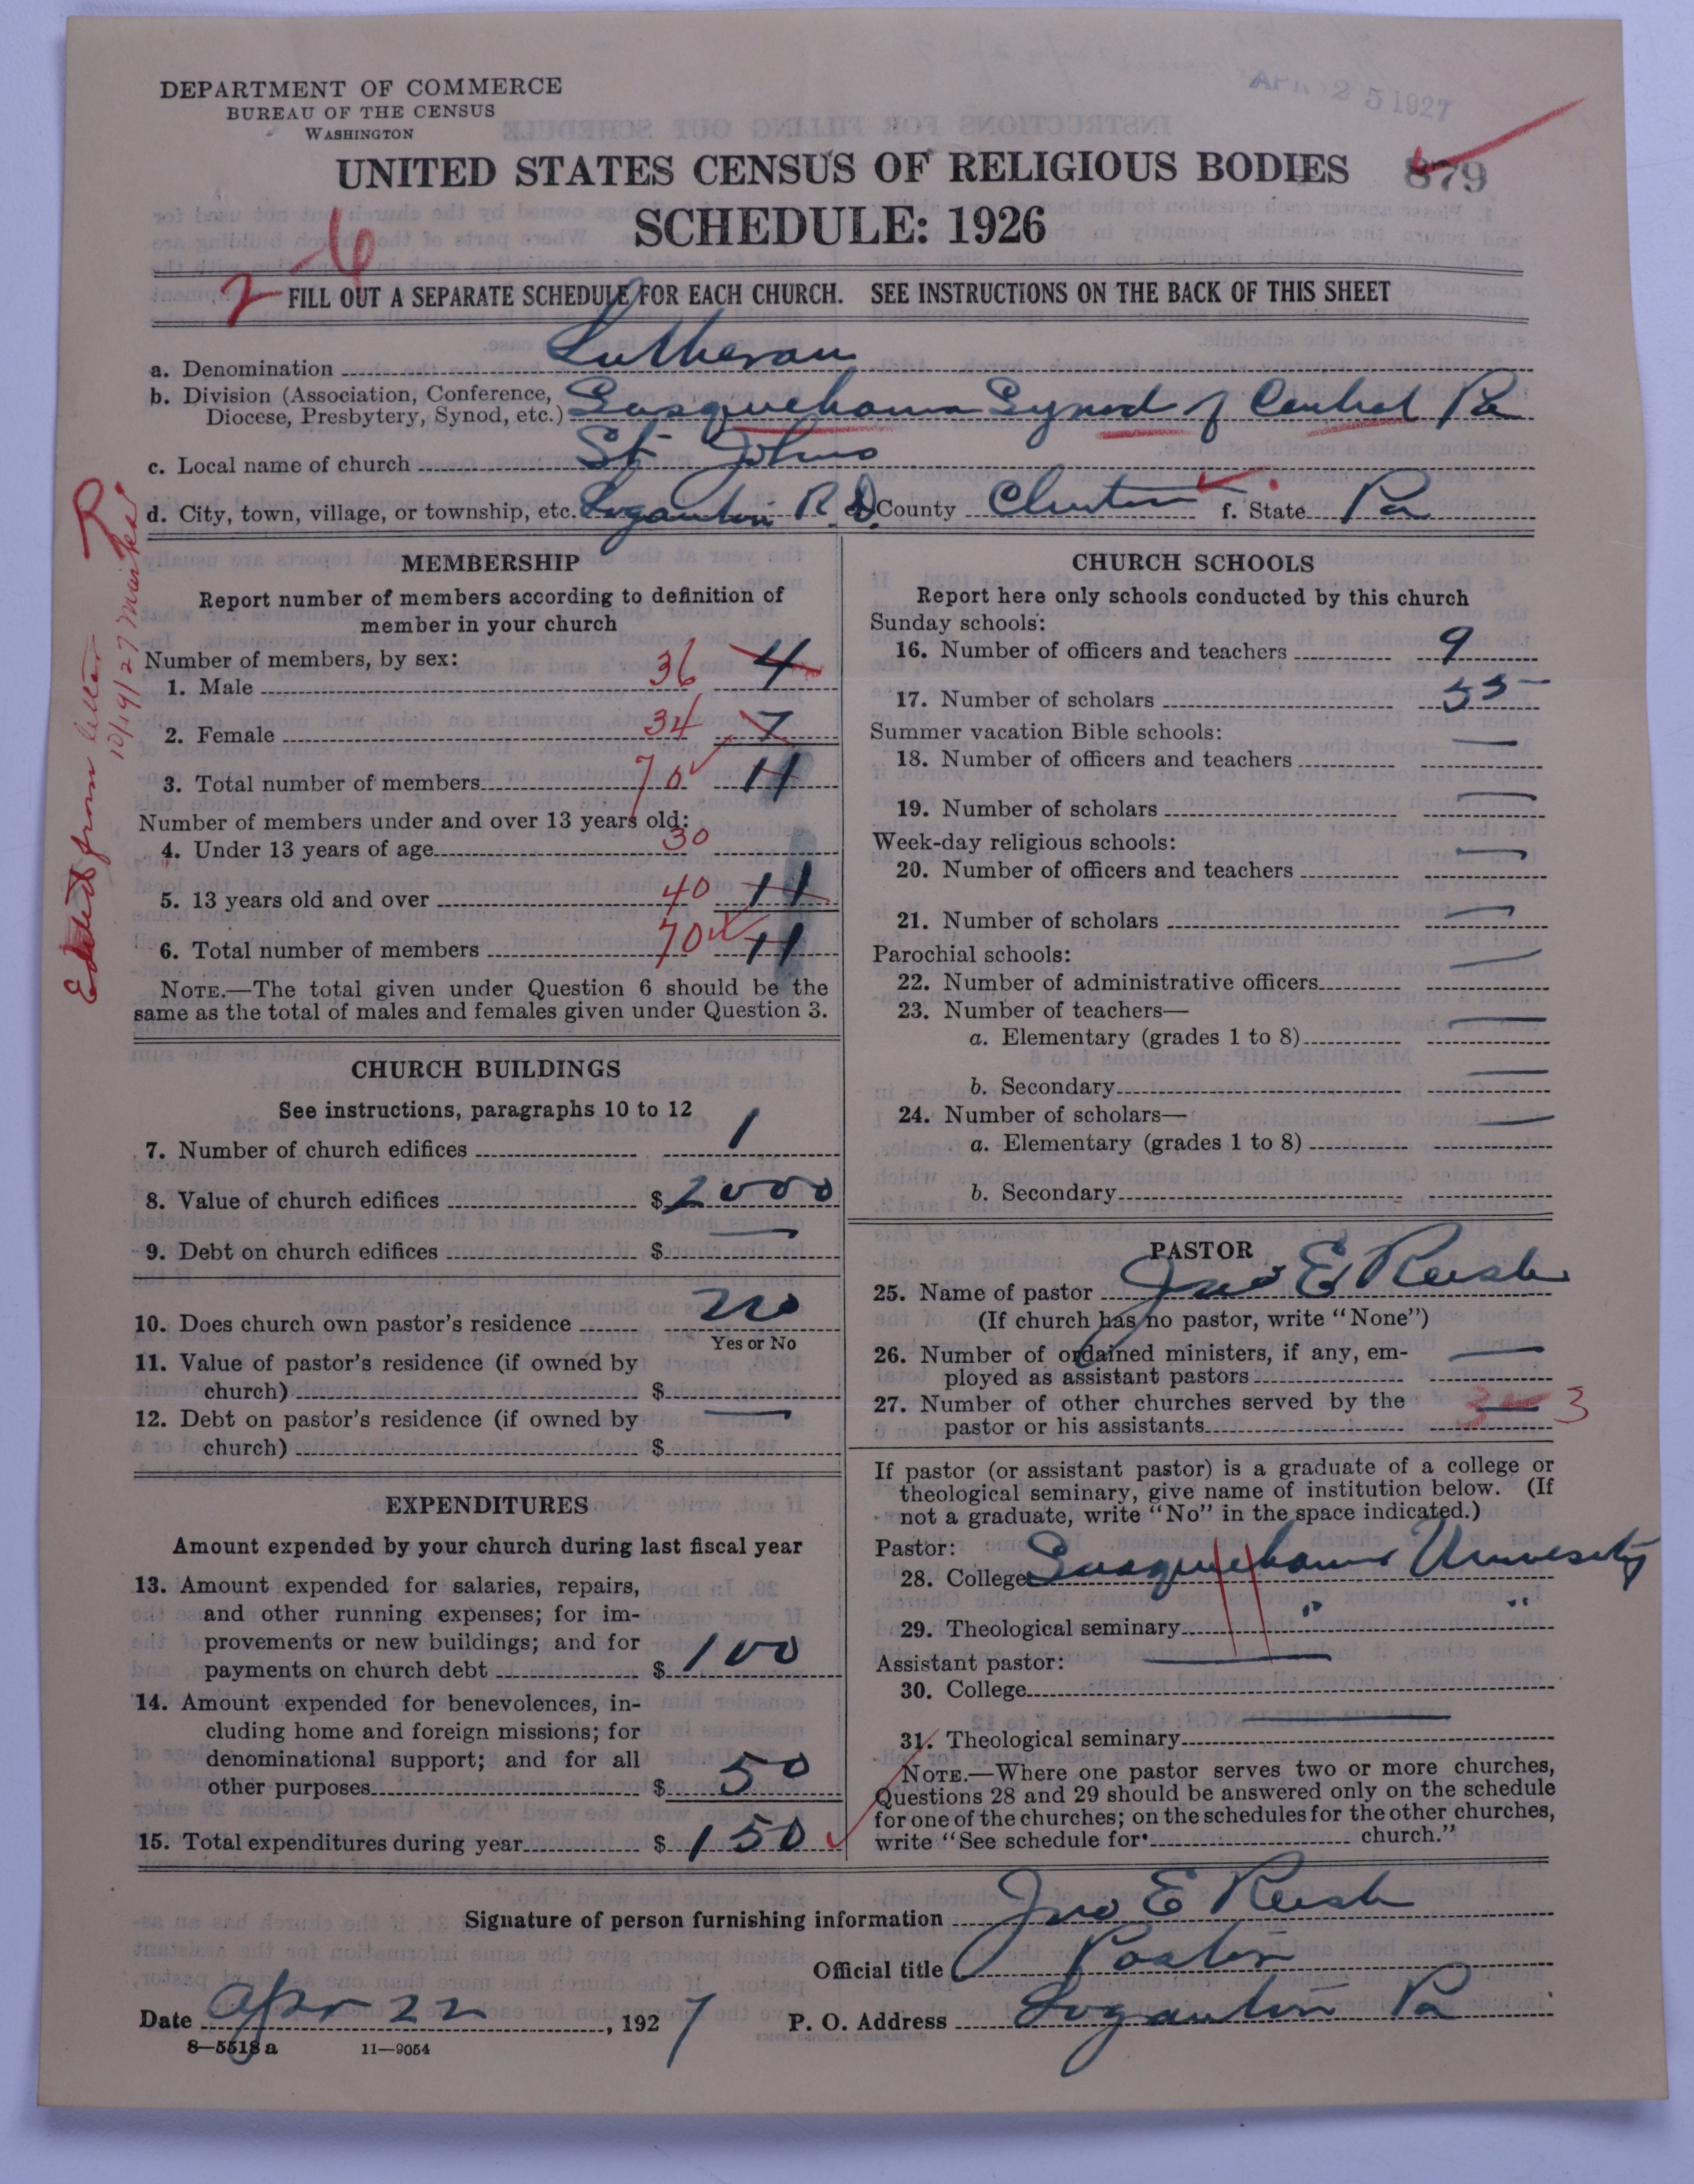 DEPARTMENT OF COMMERCE
BUREAU OF THE CENSUS
WASHINGTON
APR 25 1927
UNITED STATES CENSUS OF RELIGIOUS BODIES 879
SCHEDULE: 1926
2 6
FILL OUT A SEPARATE SCHEDULE FOR EACH CHURCH. SEE INSTRUCTIONS ON THE BACK OF THIS SHEET
a. Denomination Lutheran
b. Division (Association, Conference,
Diocese, Presbytery, Synod, etc.) Susquehanna Synod of Central Pa
c. Local name of church St Johns
d. City, town, village, or township, etc. Loganton R.D. County Clinton f. State Pa
Edited from letter
10/19/27 marked R
MEMBERSHIP
Report number of members according to definition of
member in your church
Number of members, by sex:
1. Male 36 4
2. Female 34 7
3. Total number of members 70 11
Number of members under and over 13 years old:
4. Under 13 years of age 30
5. 13 years old and over 40 11
6. Total number of members 70 11
NOTE.—The total given under Question 6 should be the
same as the total of males and females given under Question 3.
CHURCH BUILDINGS
See instructions, paragraphs 10 to 12
7. Number of church edifices 1
8. Value of church edifices $ 2000
9. Debt on church edifices $ —
10. Does church own pastor's residence no
Yes or No
11. Value of pastor's residence (if owned by
church) $
12. Debt on pastor's residence (if owned by —
church) $
EXPENDITURES
Amount expended by your church during last fiscal year
13. Amount expended for salaries, repairs,
and other running expenses; for im-
provements or new buildings; and for
payments on church debt $ 100
14. Amount expended for benevolences, in-
cluding home and foreign missions; for
denominational support; and for all
other purposes $ 50
15. Total expenditures during year $ 150
CHURCH SCHOOLS
Report here only schools conducted by this church
Sunday schools:
16. Number of officers and teachers 9
17. Number of scholars 55
Summer vacation Bible schools:
18. Number of officers and teachers —
19. Number of scholars —
Week-day religious schools:
20. Number of officers and teachers —
21. Number of scholars —
Parochial schools:
22. Number of administrative officers —
23. Number of teachers—
a. Elementary (grades 1 to 8) —
b. Secondary —
24. Number of scholars—
a. Elementary (grades 1 to 8) —
b. Secondary
PASTOR
25. Name of pastor Jno E Reish
(If church has no pastor, write "None")
26. Number of ordained ministers, if any, em-
ployed as assistant pastors —
27. Number of other churches served by the
pastor or his assistants 3 3
If pastor (or assistant pastor) is a graduate of a college or
theological seminary, give name of institution below. (If
not a graduate, write "No" in the space indicated.)
Pastor:
28. College Susquehanna University
29. Theological seminary " "
Assistant pastor: —
30. College
31. Theological seminary —
NOTE.—Where one pastor serves two or more churches,
Questions 28 and 29 should be answered only on the schedule
for one of the churches; on the schedules for the other churches,
write "See schedule for church."
Signature of person furnishing information Jno E Reish
Official title Pastor
Date Apr 22, 1927 P. O. Address Loganton Pa
8—5518 a 11—9054